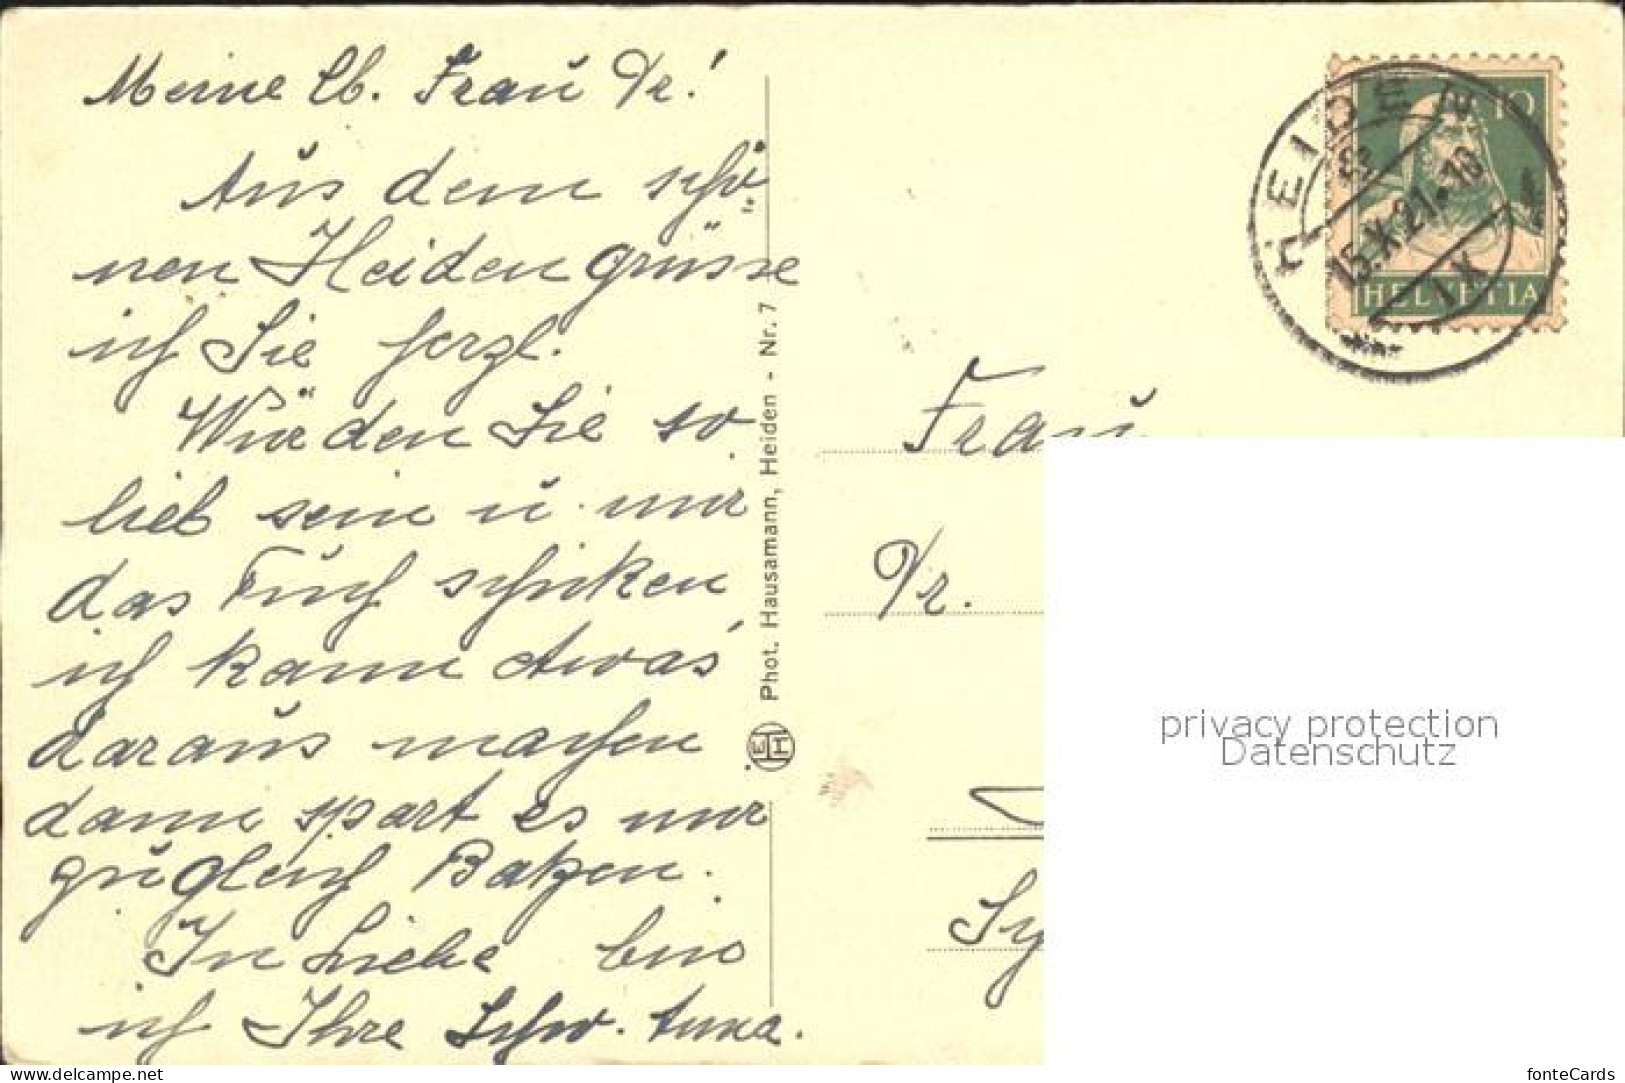 Meine lb. Frau Dr!
Aus dem schö-
nen Heiden grüsse
ich Sie herzl.
Würden Sie so
lieb sein u mir
das Tuch schiken
ich kann etwas
daraus machen
dann spart es mir
zugleich Batzen.
In Liebe bin
ich Ihre Schw. Anna.
Phot. Hausamann, Heiden - Nr. 7
EH
HEIDEN
15.X.21.-10
IX
10
HELVETIA
Frau
Dr.
privacy protection
Datenschutz
www.delcampe.net
fonteCards